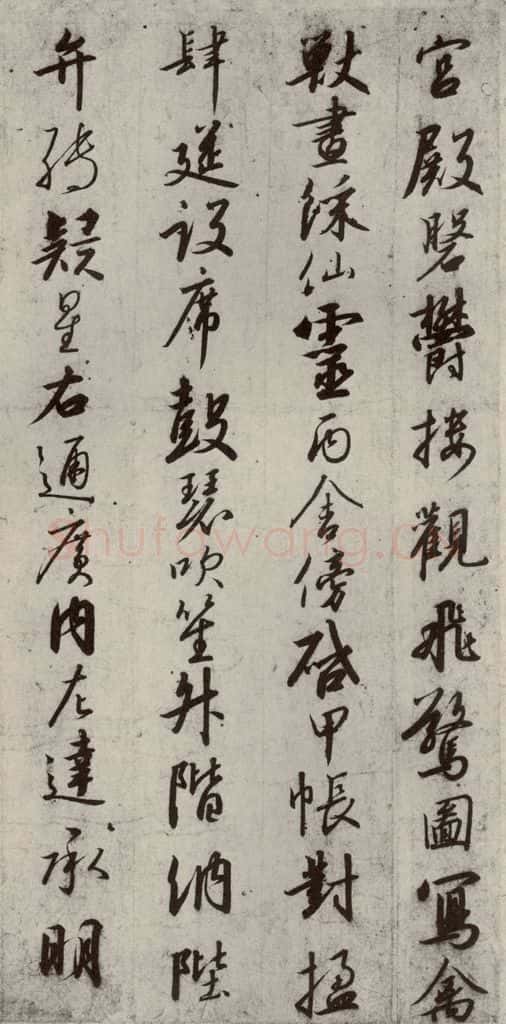 宮殿磐鬱樓觀飛驚圖寫禽
獸畫綵仙靈丙舍傍啓甲帳對楹
肆筵設席鼓瑟吹笙升階納陛
弁轉疑星右通廣內左達承明
shufawang.cn